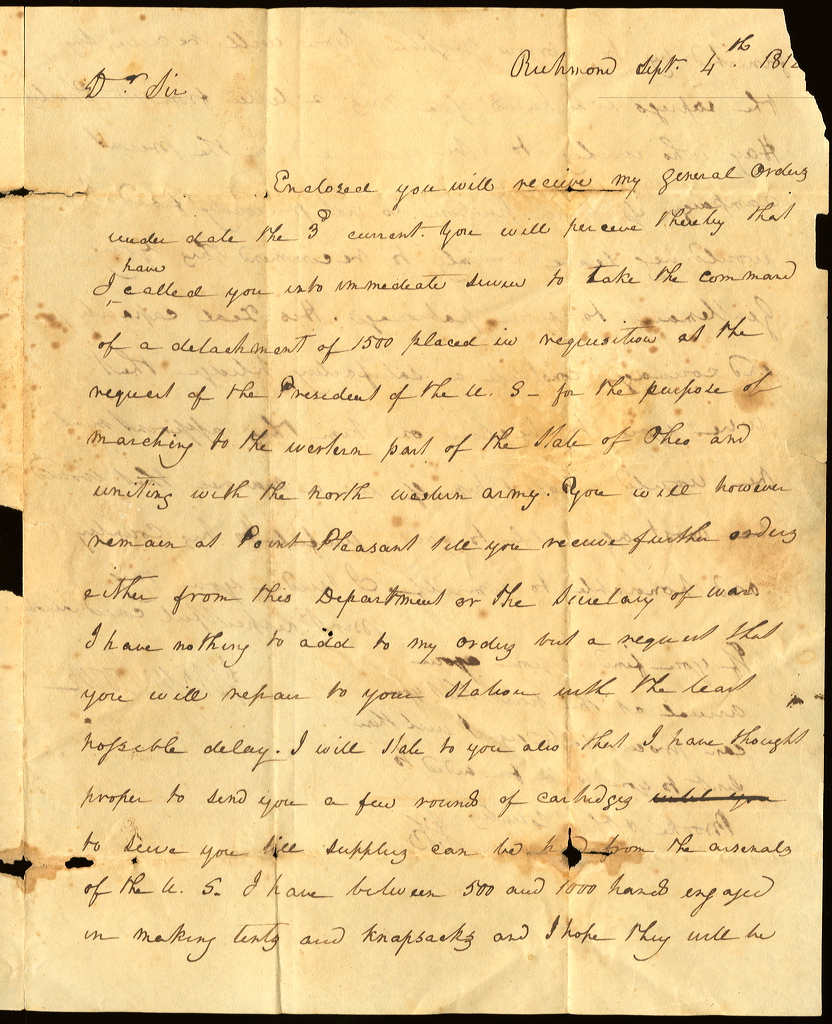 Richmond Sept. 4th 1812
Dr. Sir
Enclosed you will recieve my general Orders
under date the 3d current. You will perceive thereby that
have
I called you into immediate service to take the command
of a detachment of 1500 placed in requisition at the
request of the President of the U. S - for the purpose of
marching to the western part of the State of Ohio and
uniting with the north western army. You will however
remain at Point Pleasant till you receive further orders
either from this Department or the Secretary of war.
I have nothing to add to my orders but a request that
you will repair to your Station with the least
possible delay. I will State to you also that I have thought
proper to send you a few rounds of cartridges until you
to serve you till supplies can be had from the arsenals
of the U. S. I have between 500 and 1000 hands engaged
in making tents and knapsacks and I hope they will be